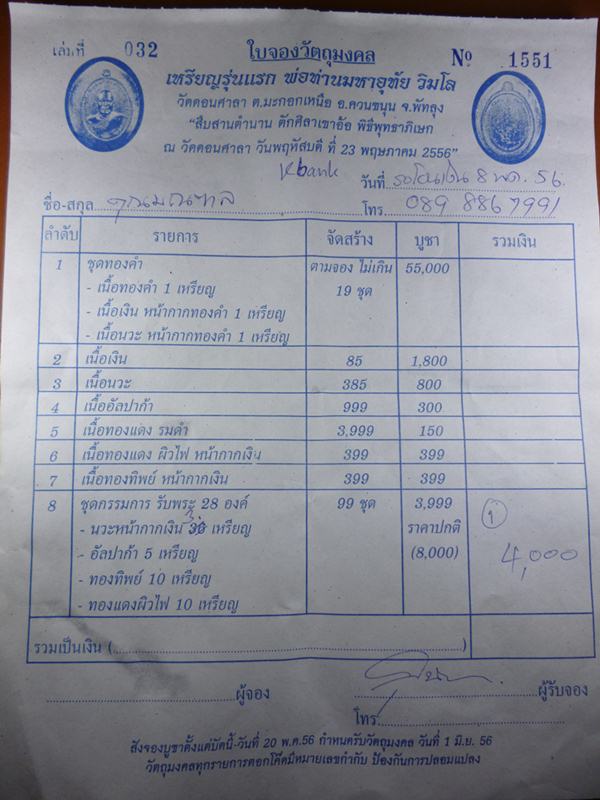 เล่มที่ 032 ใบจองวัตถุมงคล Nº 1551
เหรียญรุ่นแรก พ่อท่านมหาอุทัย วิมโล
วัดดอนศาลา ต.มะกอกเหนือ อ.ควนขนุน จ.พัทลุง
"สืบสานตำนาน ตักศิลาเขาอ้อ พิธีพุทธาภิเษก
ณ วัดดอนศาลา วันพฤหัสบดี ที่ 23 พฤษภาคม 2556"
Kbank วันที่ รอโอนเงิน 8 พค. 56.
ชื่อ-สกุล โทร 089 8867991
ลำดับ รายการ จัดสร้าง บูชา รวมเงิน
1 ชุดทองคำ ตามจอง ไม่เกิน 55,000
- เนื้อทองคำ 1 เหรียญ 19 ชุด
- เนื้อเงิน หน้ากากทองคำ 1 เหรียญ
- เนื้อนวะ หน้ากากทองคำ 1 เหรียญ
2 เนื้อเงิน 85 1,800
3 เนื้อนวะ 385 800
4 เนื้ออัลปาก้า 999 300
5 เนื้อทองแดง รมดำ 3,999 150
6 เนื้อทองแดง ผิวไฟ หน้ากากเงิน 399 399
7 เนื้อทองทิพย์ หน้ากากเงิน 399 399
8 ชุดกรรมการ รับพระ 28 องค์ 99 ชุด 3,999 1
- นวะหน้ากากเงิน 3 เหรียญ ราคาปกติ
- อัลปาก้า 5 เหรียญ (8,000) 4,000
- ทองทิพย์ 10 เหรียญ
- ทองแดงผิวไฟ 10 เหรียญ
รวมเป็นเงิน ( )
ผู้จอง ผู้รับจอง
โทร
สั่งจองบูชาตั้งแต่บัดนี้-วันที่ 20 พ.ค.56 กำหนดรับวัตถุมงคล วันที่ 1 มิ.ย. 56
วัตถุมงคลทุกรายการตอกโค๊ดมีหมายเลขกำกับ ป้องกันการปลอมแปลง